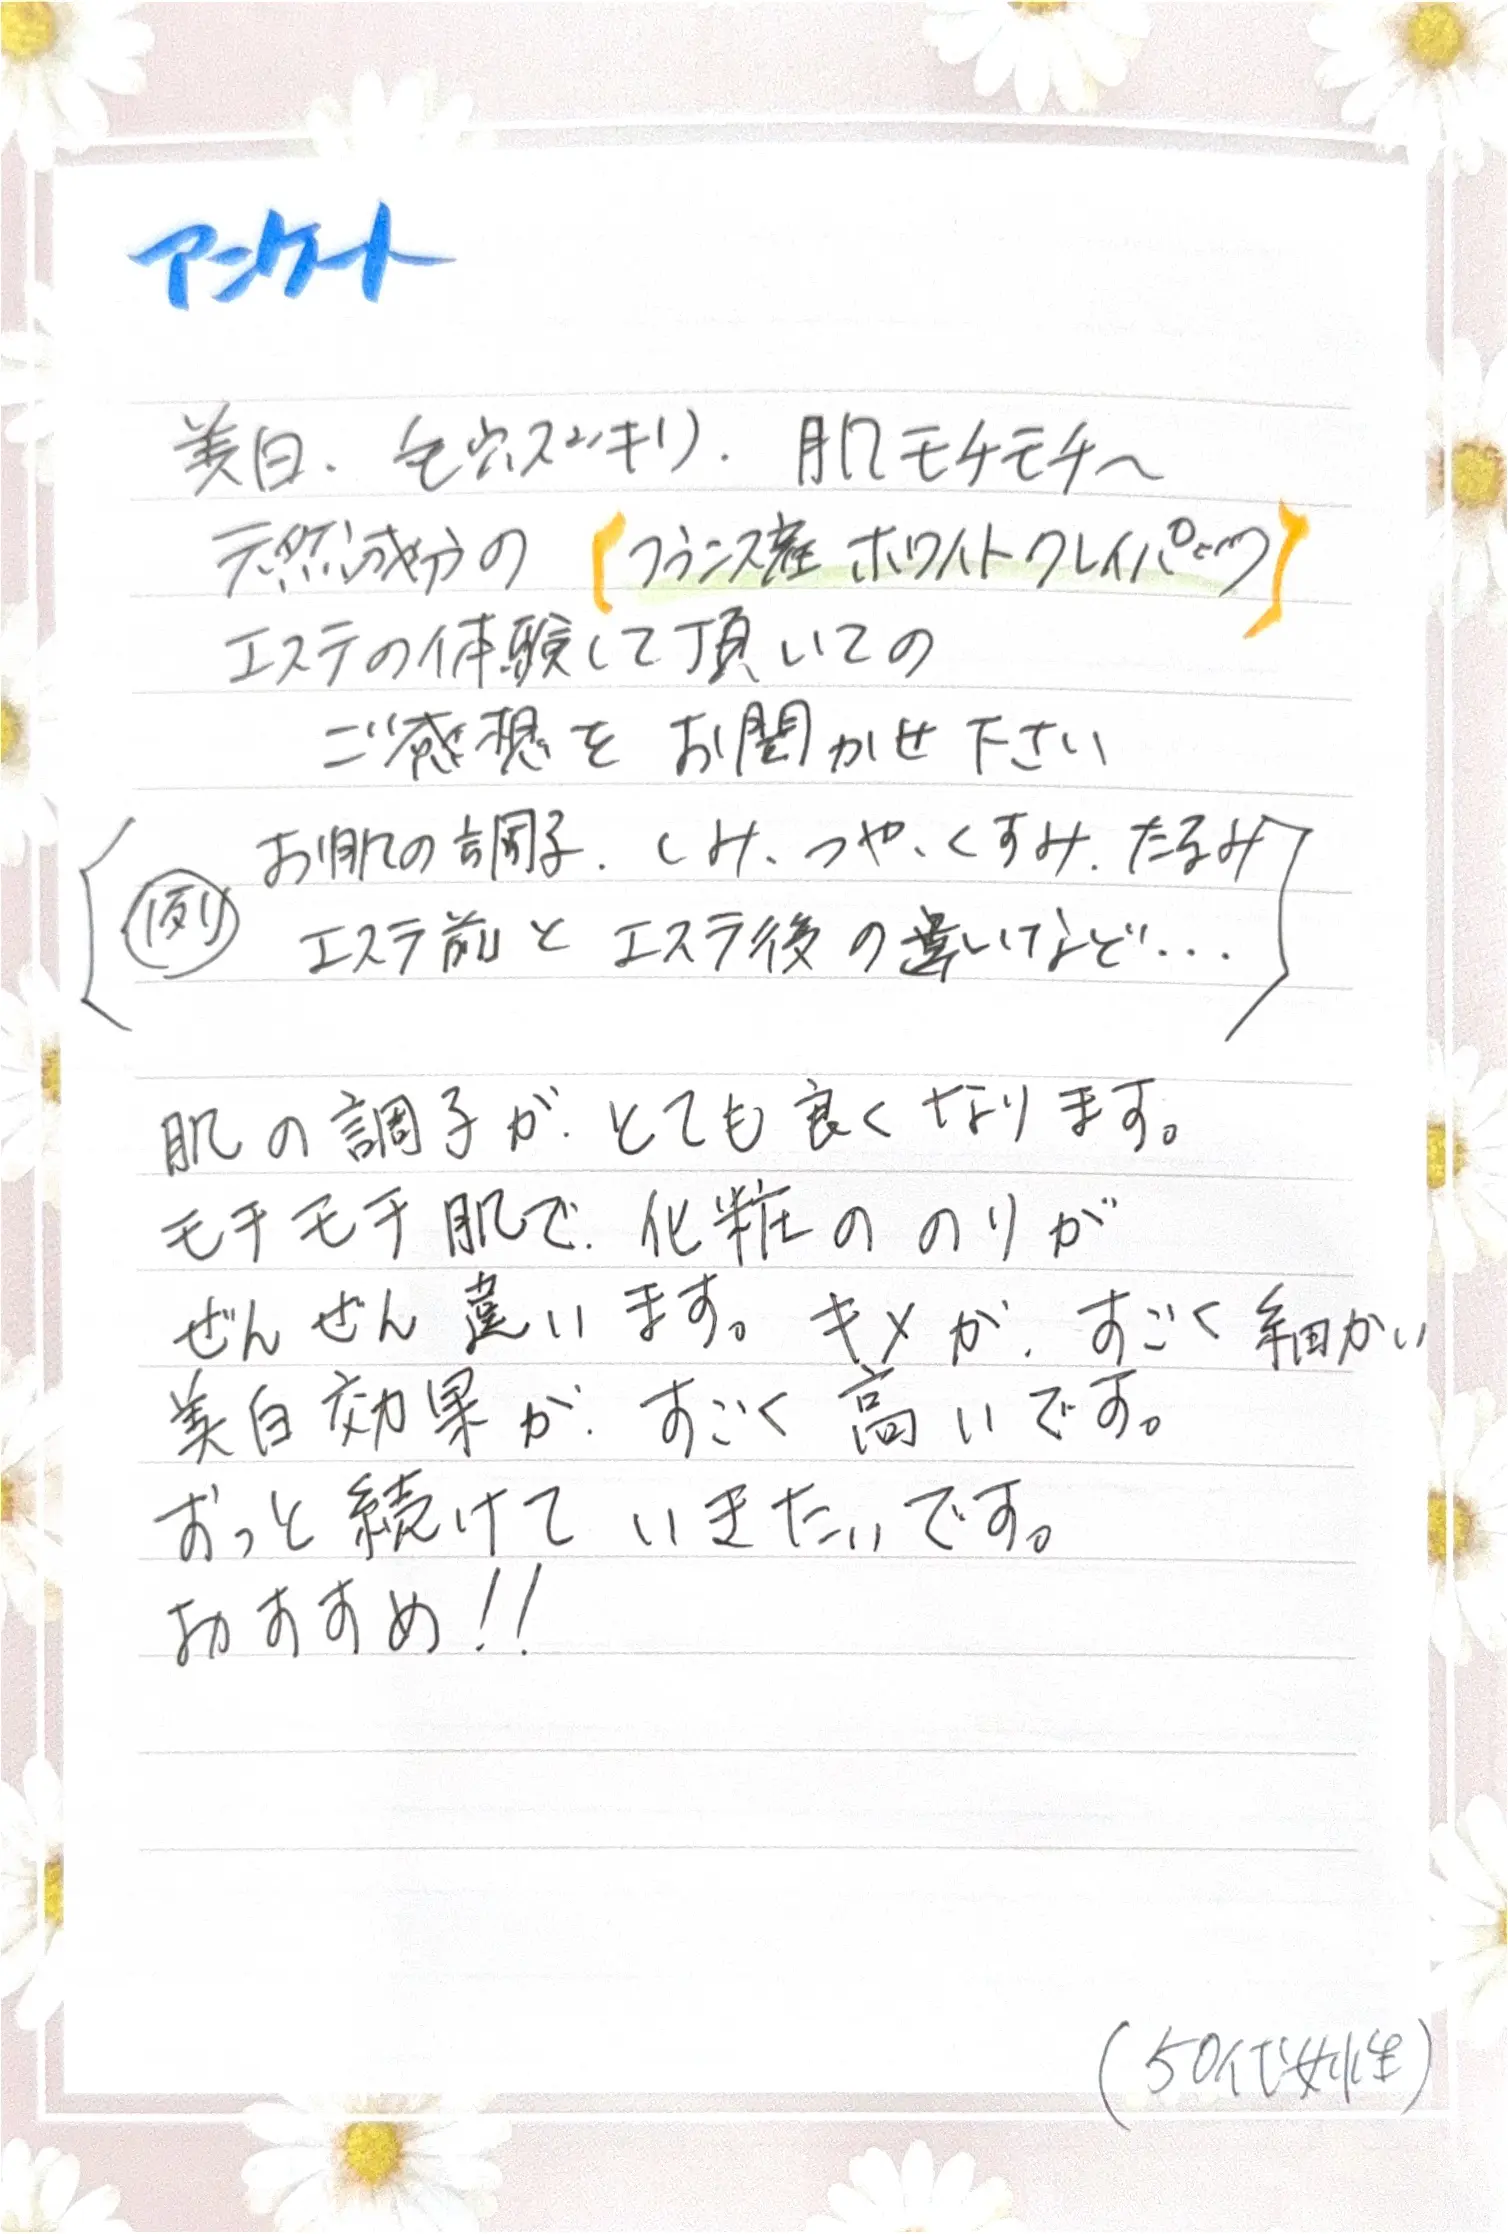 アンケート
美白、毛穴スッキリ、肌モチモチへ
天然成分の【フランス産ホワイトクレイパック】
エステの体験して頂いての
ご感想をお聞かせ下さい
お肌の調子、しみ、つや、くすみ、たるみ
例 エステ前とエステ後の違いなど…
肌の調子が、とても良くなります。
モチモチ肌で、化粧ののりが
ぜんぜん違います。キメが、すごく細かい
美白効果が、すごく高いです。
ずっと続けていきたいです。
おすすめ!!
(50代女性)